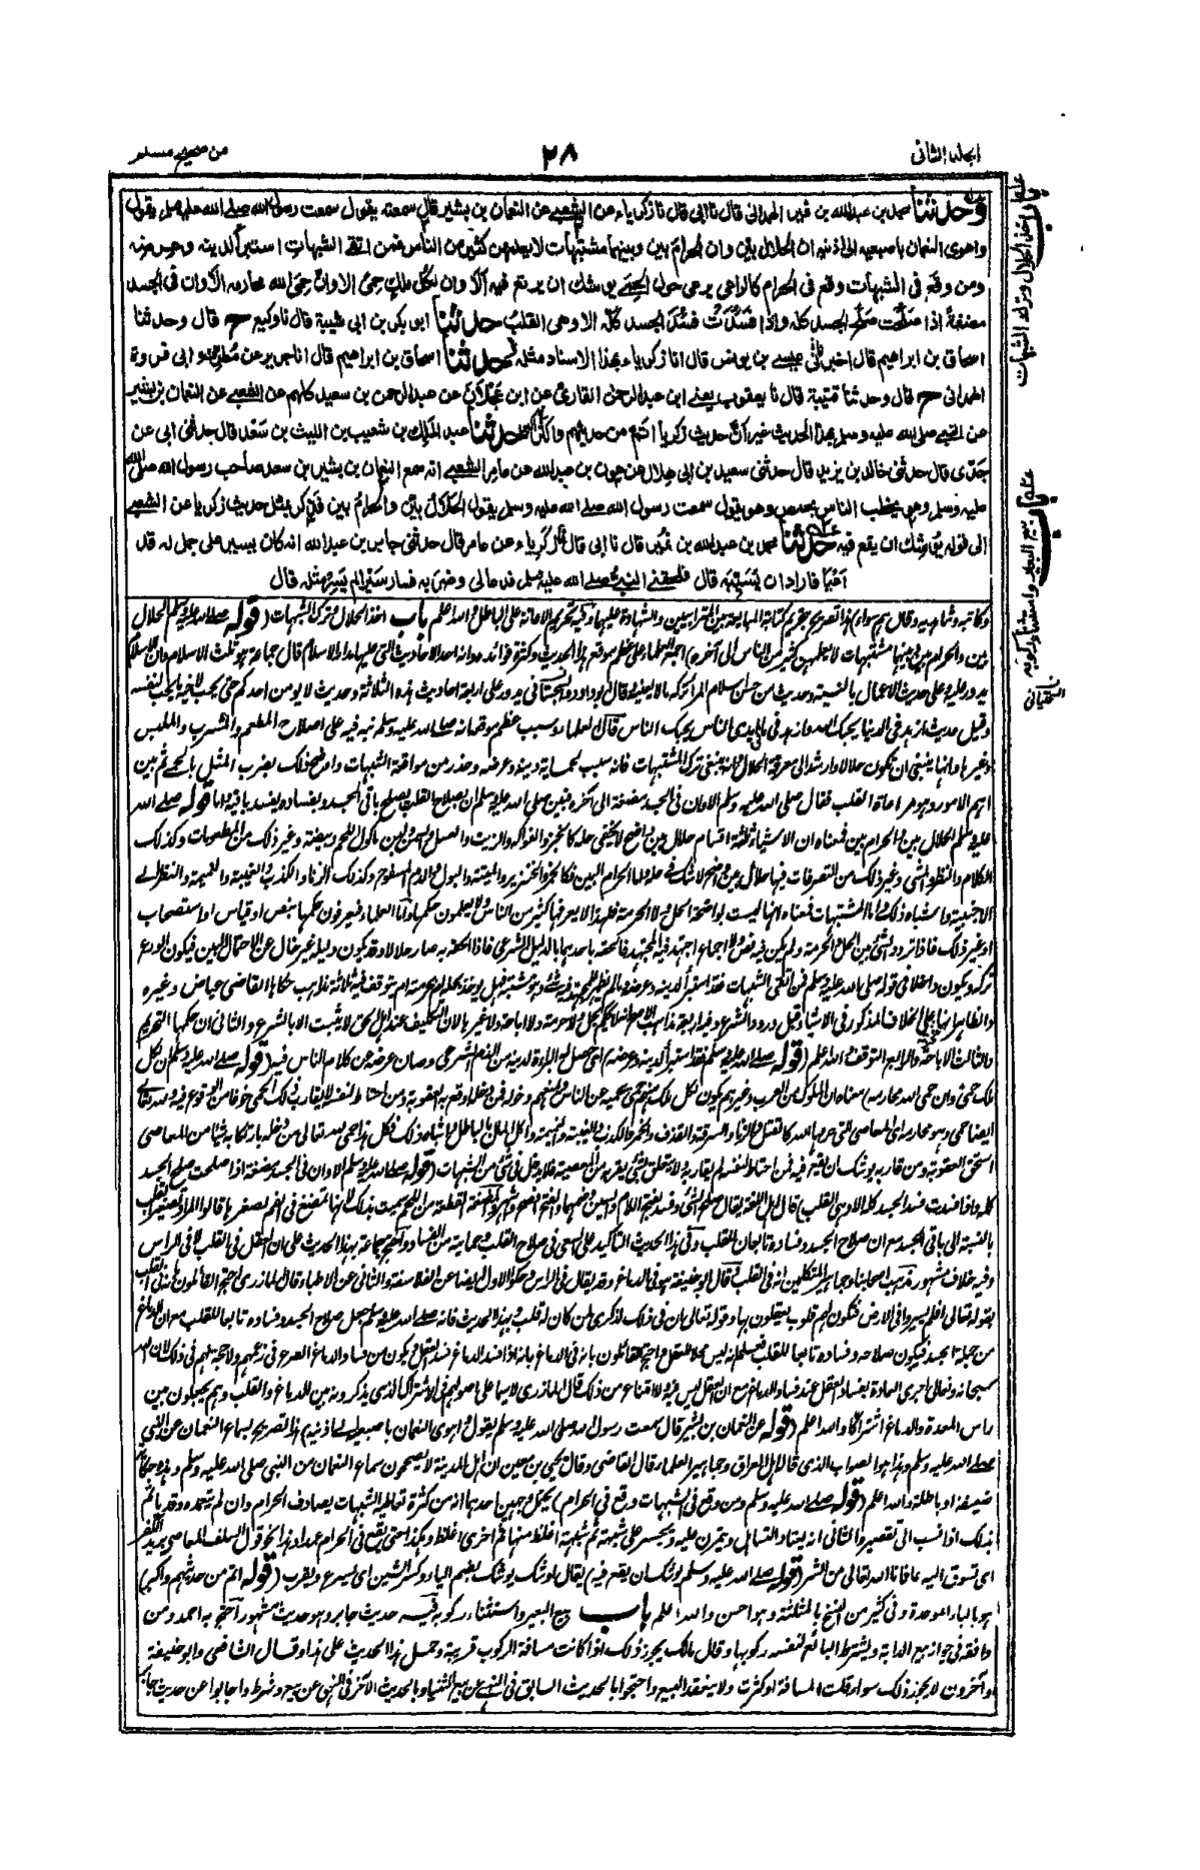 الجلد الثاني
٢٨
من صحيح مسلم
وحدثنا محمد بن عبد الله بن نمير الهمداني قال نا ابي قال نا زكرياء عن الشعبي عن النعمان بن بشير قال سمعته يقول سمعت رسول الله صلى الله عليه وسلم يقول
واهوى النعمان باصبعيه الى اذنيه ان الحلال بين وان الحرام بين وبينهما مشتبهات لا يعلمهن كثير من الناس فمن اتقى الشبهات استبرأ لدينه وعرضه
ومن وقع في الشبهات وقع في الحرام كالراعي يرعى حول الحمى يوشك ان يرتع فيه الا وان لكل ملك حمى الا وان حمى الله محارمه الا وان في الجسد
مضغة اذا صلحت صلح الجسد كله واذا فسدت فسد الجسد كله الا وهي القلب حدثنا ابو بكر بن ابي شيبة قال نا وكيع ح قال وحدثنا
اسحاق بن ابراهيم قال اخبرني عيسى بن يونس قال انا زكرياء بهذا الاسناد مثله حدثنا اسحاق بن ابراهيم قال انا جرير عن مطرف وابى فروة
الهمداني ح قال وحدثنا قتيبة قال نا يعقوب يعني ابن عبد الرحمن القاري عن ابن عجلان عن عبد الرحمن بن سعيد كلهم عن الشعبي عن النعمان بن بشير
عن النبي صلى الله عليه وسلم بهذا الحديث غير ان حديث زكريا اتم من حديثهم واكثر حدثنا عبد الملك بن شعيب بن الليث بن سعد قال حدثني ابي عن
جدي قال حدثني خالد بن يزيد قال حدثني سعيد بن ابي هلال عن عون بن عبد الله عن عامر الشعبي انه سمع النعمان بن بشير بن سعد صاحب رسول الله صلى الله
عليه وسلم وهو يخطب الناس بحمص وهو يقول سمعت رسول الله صلى الله عليه وسلم يقول الحلال بين والحرام بين فذكر بمثل حديث زكريا عن الشعبي
الى قوله يوشك ان يقع فيه حدثنا محمد بن عبد الله بن نمير قال نا ابي قال نا زكرياء عن عامر قال حدثني جابر بن عبد الله انه كان يسير على جمل له قد
اعيا فاراد ان يسيبه قال فلحقني النبي صلى الله عليه وسلم فدعا لي وضربه فسار سيرا لم يسر مثله قال
باب اخذ الحلال وترك الشبهات
باب بيع البعير واستثناء ركوبه
وكاتبه وشاهديه وقال هم سواء هذا تصريح بتحريم كتابة المبايعة بين المترابيين والشهادة عليهما وفيه تحريم الاعانة على الباطل والله اعلم باب اخذ الحلال وترك الشبهات (قوله صلى الله عليه وسلم الحلال
بين والحرام بين وبينهما مشتبهات لا يعلمهن كثير من الناس الى آخره) اجمع العلماء على عظم موقع هذا الحديث وكثرة فوائده وانه احد الاحاديث التي عليها مدار الاسلام قال جماعة هو ثلث الاسلام وان الاسلام
يدور عليه وعلى حديث الاعمال بالنية وحديث من حسن اسلام المرء تركه ما لا يعنيه وقال ابو داود السجستاني يدور على اربعة احاديث هذه الثلاثة وحديث لا يؤمن احدكم حتى يحب لاخيه ما يحب لنفسه
وقيل حديث ازهد في الدنيا يحبك الله وازهد فيما في ايدي الناس يحبك الناس قال العلماء وسبب عظم موقعه انه صلى الله عليه وسلم نبه فيه على اصلاح المطعم والمشرب والملبس
وغيرها وانها ينبغي ان تكون حلالا وارشد الى معرفة الحلال وانه ينبغي ترك المشتبهات فانه سبب لحماية دينه وعرضه وحذر من مواقعة الشبهات واوضح ذلك بضرب المثل بالحمى ثم بين
اهم الامور وهو مراعاة القلب فقال صلى الله عليه وسلم الا وان في الجسد مضغة الى آخره فبين صلى الله عليه وسلم ان بصلاح القلب يصلح باقي الجسد وبفساده يفسد باقيه اما قوله صلى الله
عليه وسلم الحلال بين والحرام بين فمعناه ان الاشياء ثلثة اقسام حلال بين واضح لا يخفى حله كالخبز والفواكه والزيت والعسل والسمن ولبن ماكول اللحم وبيضه وغير ذلك من المطعومات وكذلك
الكلام والنظر والمشي وغير ذلك من التصرفات فيها حلال بين واضح لا شك في حله واما الحرام البين فكالخمر والخنزير والميتة والبول والدم المسفوح وكذلك الزنا والكذب والغيبة والنميمة والنظر الى
الاجنبية واشباه ذلك واما المشتبهات فمعناه انها ليست بواضحة الحل ولا الحرمة فلهذا لا يعرفها كثير من الناس ولا يعلمون حكمها واما العلماء فيعرفون حكمها بنص او قياس او استصحاب
او غير ذلك فاذا تردد شيء بين الحل والحرمة ولم يكن فيه نص ولا اجماع اجتهد فيه المجتهد فالحقه باحدهما بالدليل الشرعي فاذا الحقه به صار حلالا وقد يكون دليله غير خال عن الاحتمال البين فيكون الورع
تركه ويكون داخلا في قوله صلى الله عليه وسلم فمن اتقى الشبهات فقد استبرأ لدينه وعرضه وما لم يظهر للمجتهد فيه شيء وهو مشتبه فهل يؤخذ بحله ام بحرمته ام يتوقف فيه ثلاثة مذاهب حكاها القاضي عياض وغيره
والظاهر انها مخرجة على الخلاف المذكور في الاشياء قبل ورود الشرع وفيه اربعة مذاهب الاصح انه لا يحكم بحل ولا حرمة ولا اباحة ولا غيرها لان التكليف عند اهل الحق لا يثبت الا بالشرع والثاني ان حكمها التحريم
والثالث الاباحة والرابع التوقف والله اعلم (قوله صلى الله عليه وسلم فقد استبرأ لدينه وعرضه) اي حصل له البراءة لدينه من الذم الشرعي وصان عرضه عن كلام الناس فيه (قوله صلى الله عليه وسلم ان لكل
ملك حمى وان حمى الله محارمه) معناه ان الملوك من العرب وغيرهم يكون لكل ملك منهم حمى يحميه عن الناس ويمنعهم دخوله فمن دخله اوقع به العقوبة ومن احتاط لنفسه لا يقارب ذلك الحمى خوفا من الوقوع فيه ولله تعالى
ايضا حمى وهو محارمه اي المعاصي التي حرمها الله كالقتل والزنا والسرقة والقذف والخمر والكذب والغيبة والنميمة واكل المال بالباطل واشباه ذلك فكل هذا حمى الله تعالى من دخله بارتكابه شيئا من المعاصي
استحق العقوبة ومن قاربه يوشك ان يقع فيه فمن احتاط لنفسه لم يقاربه ولا يتعلق بشيء يقربه من المعصية فلا يدخل في شيء من الشبهات (قوله صلى الله عليه وسلم الا وان في الجسد مضغة اذا صلحت صلح الجسد
كله واذا فسدت فسد الجسد كله الا وهي القلب) قال اهل اللغة يقال صلح الشيء وفسد بفتح اللام والسين وضمهما والفتح افصح واشهر والمضغة القطعة من اللحم سميت بذلك لانها تمضغ في الفم لصغرها قالوا المراد تصغير القلب
بالنسبة الى باقي الجسد مع ان صلاح الجسد وفساده تابعان للقلب وفي هذا الحديث التأكيد على السعي في صلاح القلب وحمايته من الفساد واحتج جماعة بهذا الحديث على ان العقل في القلب لا في الراس
وفيه خلاف مشهور مذهب اصحابنا وجماهير المتكلمين انه في القلب وقال ابو حنيفة هو في الدماغ وقد يقال في الراس وحكوا الاول ايضا عن الفلاسفة والثاني عن الاطباء قال المازري واحتج القائلون بانه في القلب
بقوله تعالى افلم يسيروا في الارض فتكون لهم قلوب يعقلون بها وقوله تعالى ان في ذلك لذكرى لمن كان له قلب وبهذا الحديث فانه صلى الله عليه وسلم جعل صلاح الجسد وفساده تابعا للقلب مع ان الدماغ
من جملة الجسد فيكون صلاحه وفساده تابعا للقلب فعلم انه ليس محلا للعقل واحتج القائلون بانه في الدماغ بانه اذا فسد الدماغ فسد العقل ويكون من فساد الدماغ الصرع في زعمهم ولا حجة لهم في ذلك لان الله
سبحانه وتعالى اجرى العادة بفساد العقل عند فساد الدماغ مع ان العقل ليس فيه ولا امتناع من ذلك قال المازري لاسيما على اصولهم في الاشتراك الذي يذكرونه بين الدماغ والقلب وهم يجعلون بين
راس المعدة والدماغ اشتراكا والله اعلم (قوله عن النعمان بن بشير قال سمعت رسول الله صلى الله عليه وسلم يقول واهوى النعمان باصبعيه الى اذنيه) هذا تصريح بسماع النعمان عن النبي
صلى الله عليه وسلم وهذا هو الصواب الذي قاله اهل العراق وجماهير العلماء قال القاضي وقال يحيى بن معين ان اهل المدينة لا يصححون سماع النعمان من النبي صلى الله عليه وسلم وهذه حكاية
ضعيفة او باطلة والله اعلم (قوله صلى الله عليه وسلم ومن وقع في الشبهات وقع في الحرام) يحتمل وجهين احدهما انه من كثرة تعاطيه الشبهات يصادف الحرام وان لم يتعمده وقد ياثم
بذلك اذا نسب الى تقصير والثاني انه يعتاد التساهل ويتمرن عليه ويجسر على شبهة ثم شبهة اغلظ منها ثم اخرى اغلظ وهكذا حتى يقع في الحرام عمدا وهذا نحو قول السلف المعاصي بريد الكفر
اي تسوق اليه عافانا الله تعالى من الشر (قوله صلى الله عليه وسلم يوشك ان يقع فيه) يقال اوشك يوشك بضم الياء وكسر الشين اي يسرع ويقرب (قوله اتم من حديثهم واكبر)
هو بالباء الموحدة وفي كثير من النسخ بالمثلثة وهو احسن والله اعلم باب بيع البعير واستثناء ركوبه فيه حديث جابر وهو حديث مشهور احتج به احمد ومن
وافقه في جواز بيع الدابة ويشترط البائع لنفسه ركوبها وقال مالك يجوز ذلك اذا كانت مسافة الركوب قريبة وحمل هذا الحديث على هذا وقال الشافعي وابو حنيفة
وآخرون لا يجوز ذلك سواء قلت المسافة او كثرت ولا ينعقد البيع واحتجوا بالحديث السابق في النهي عن بيع الثنيا وبالحديث الآخر في النهي عن بيع وشرط واجابوا عن حديث جابر